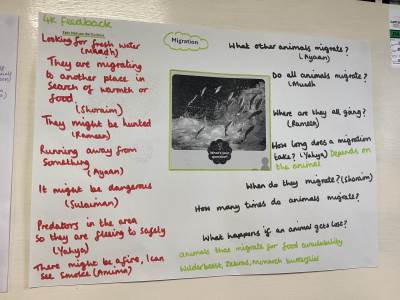 4K feedback
Looking for fresh water
(Muadh)
They are migrating
to another place in
search of warmth or
food.
(Shoraim)
They might be hunted
(Rameen)
Running away from
something
(Ayaan)
It might be dangerous
(Sulaiman)
Predators in the area
so they are fleeing to safety
(Yahya)
There might be a fire, I can
see smoke (Amima)
Migration
What's your question?
What other animals migrate?
(Ayaan)
Do all animals migrate?
(Muadh
Where are they all going?
(Rameen)
How long does a migration
take? (Yahya) Depends on
the animal
When do they migrate? (Shoraim)
How many times do animals migrate?
What happens if an animal gets lose?
Animals that migrate for food availability
Wilderbeest, Zebras, Monarch butterflies